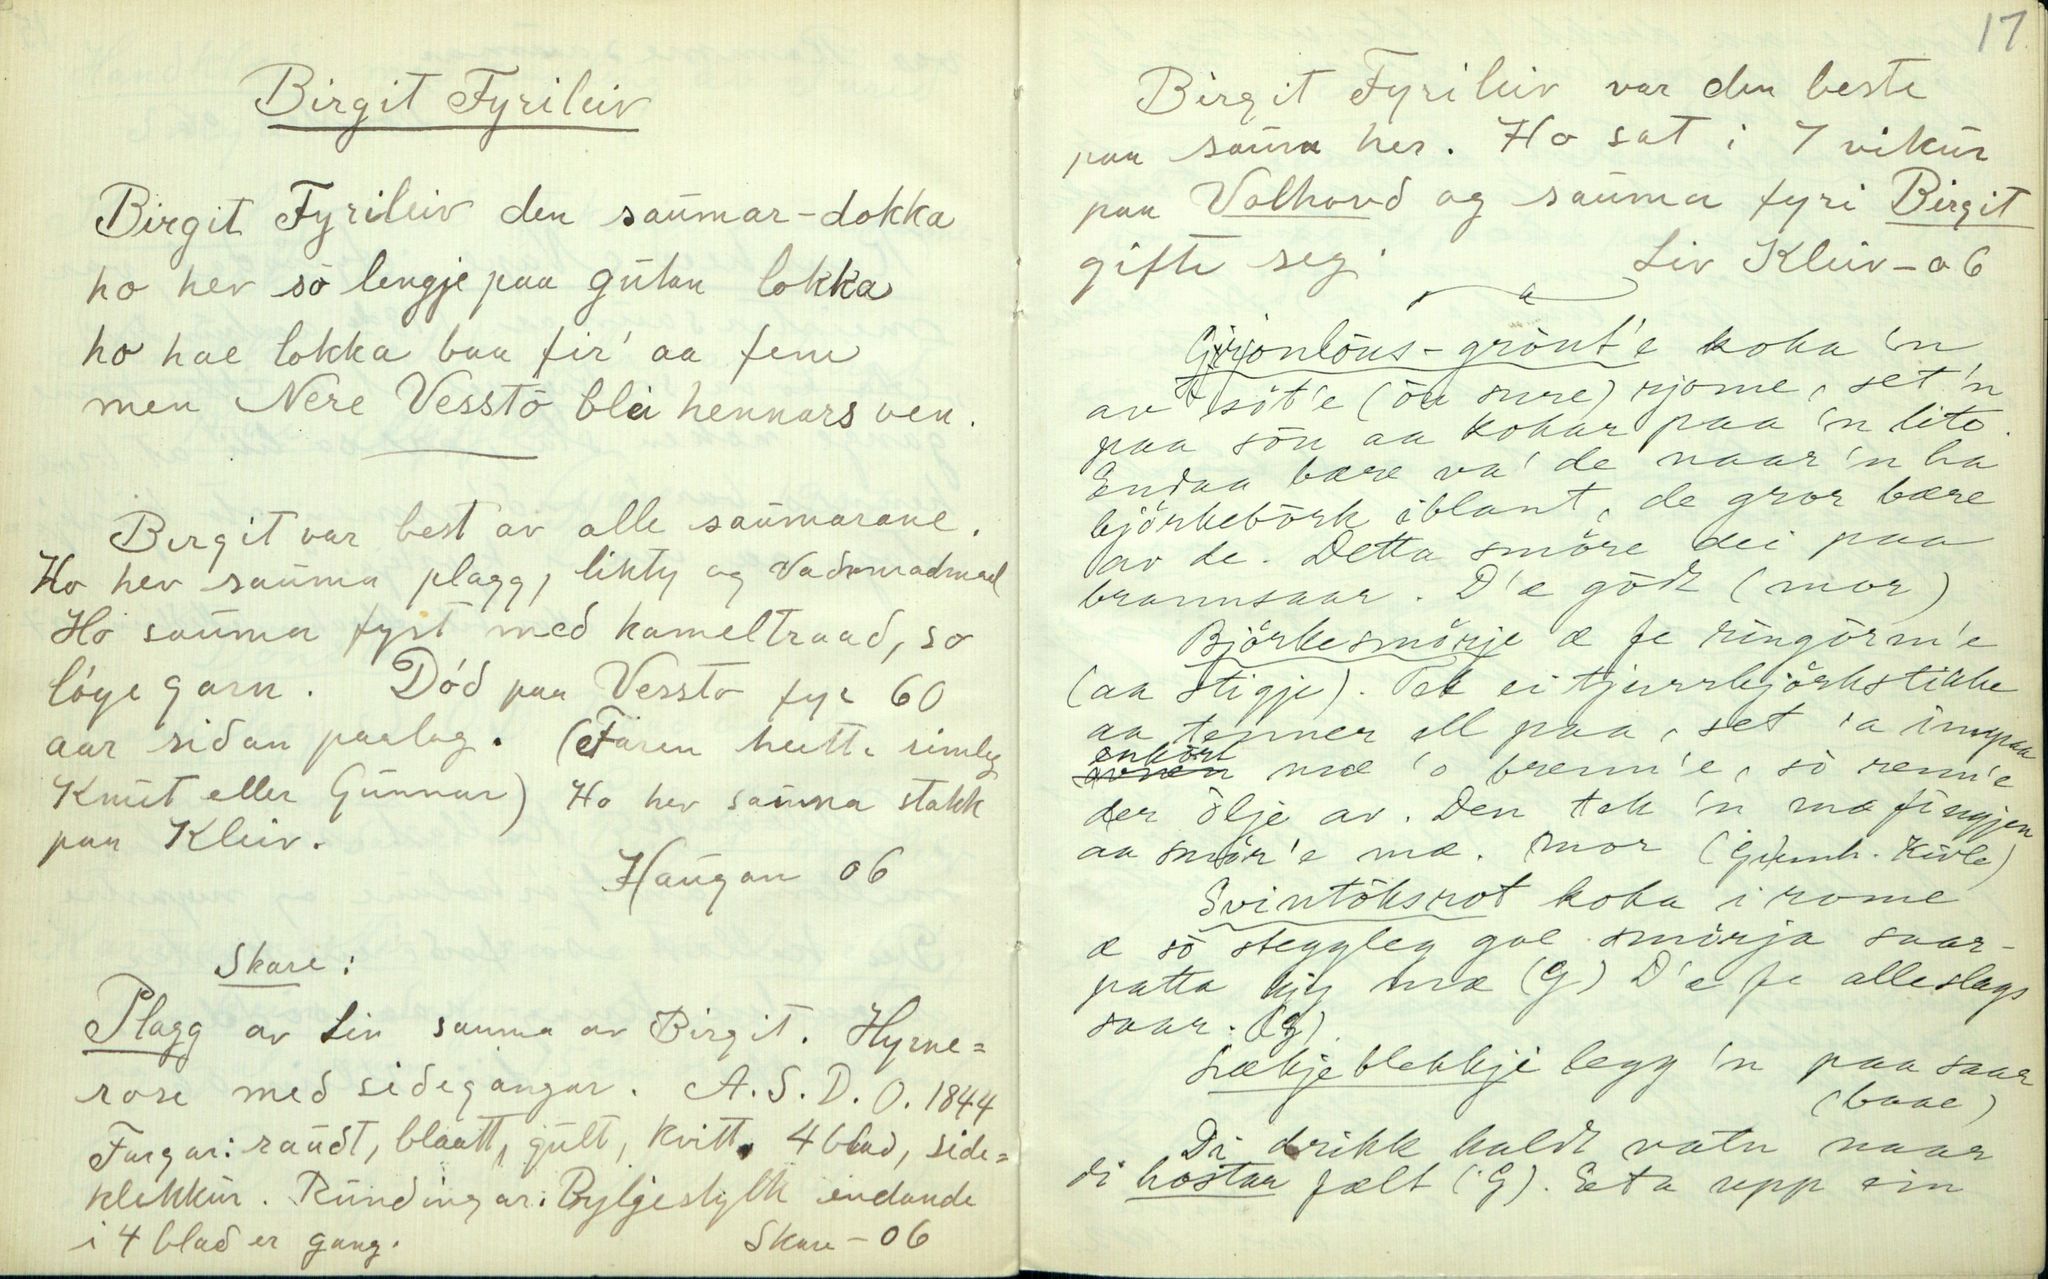 Birgit Fyrileiv
Birgit Fyrileiv den saŭmar-dokka
ho hev sò lengje paa gŭtan lokka
ho hae lokka baa fir' aa fem
men Nere Vesstò blei hennars ven.
Birgit var best av alle saŭmarane.
Ho hev saŭma plagg, likty og
Ho saŭma fyst med kameltraad, so
lóge garn. Dód paa Vessto fyr 60
aar sidan paalag. (Faren heitte rimleg
Knŭt eller Gŭnnar) Ho hev saŭma stakk
paa Kleiv.
Haŭgan 06
Skare:
Plagg av Lin sauma av Birgit. Hyrne=
rose med sidegangar. A.S.D.O. 1844
Fargar: raŭdt, blaatt, gŭlt, kvitt. 4 blad, side=
klekkŭr. Rŭndingar: Bylgjestylk endande
i 4 blad er gang. Skare - 06
17
Birgit Fyrileiv var den beste
paa saŭma her. Ho sat i 7 vikŭr
paa Valhovd og saŭma fyri Birgit
gifte seg. Liv Kleiv - 06
Grjonlöus-grönt'e koka 'n
av söt'e (öu sure) rjome, set 'n
paa sön aa kokar paa 'n lite.
Endaa bære va' de naar 'n ha
björkebörk iblant, de gror bære
av de. Detta smöre dei paa
brannsaar. D'æ gödt (mor)
Björkesmörje æ fe ringörm'e
(aa stigje). Tek ei tjurrbjörkstikke
aa tenner ell paa, set 'a innpaa
enkört mæ 'o brenn'e, sö renn'e
der ölje av. Den tek 'n mæ fingjen
aa smör'e mæ. Mor (Gunh. Kivle)
Svintöksrot koka i rome
æ sö steggleg goe smörja saar-
patta mæ (G) D'æ fe alleslags
saar. (G)
Sækjeblekkje legg 'n paa saar
(baae)
Di drikk kaldt vatn naar
di hostar fælt (G). Eta upp ein